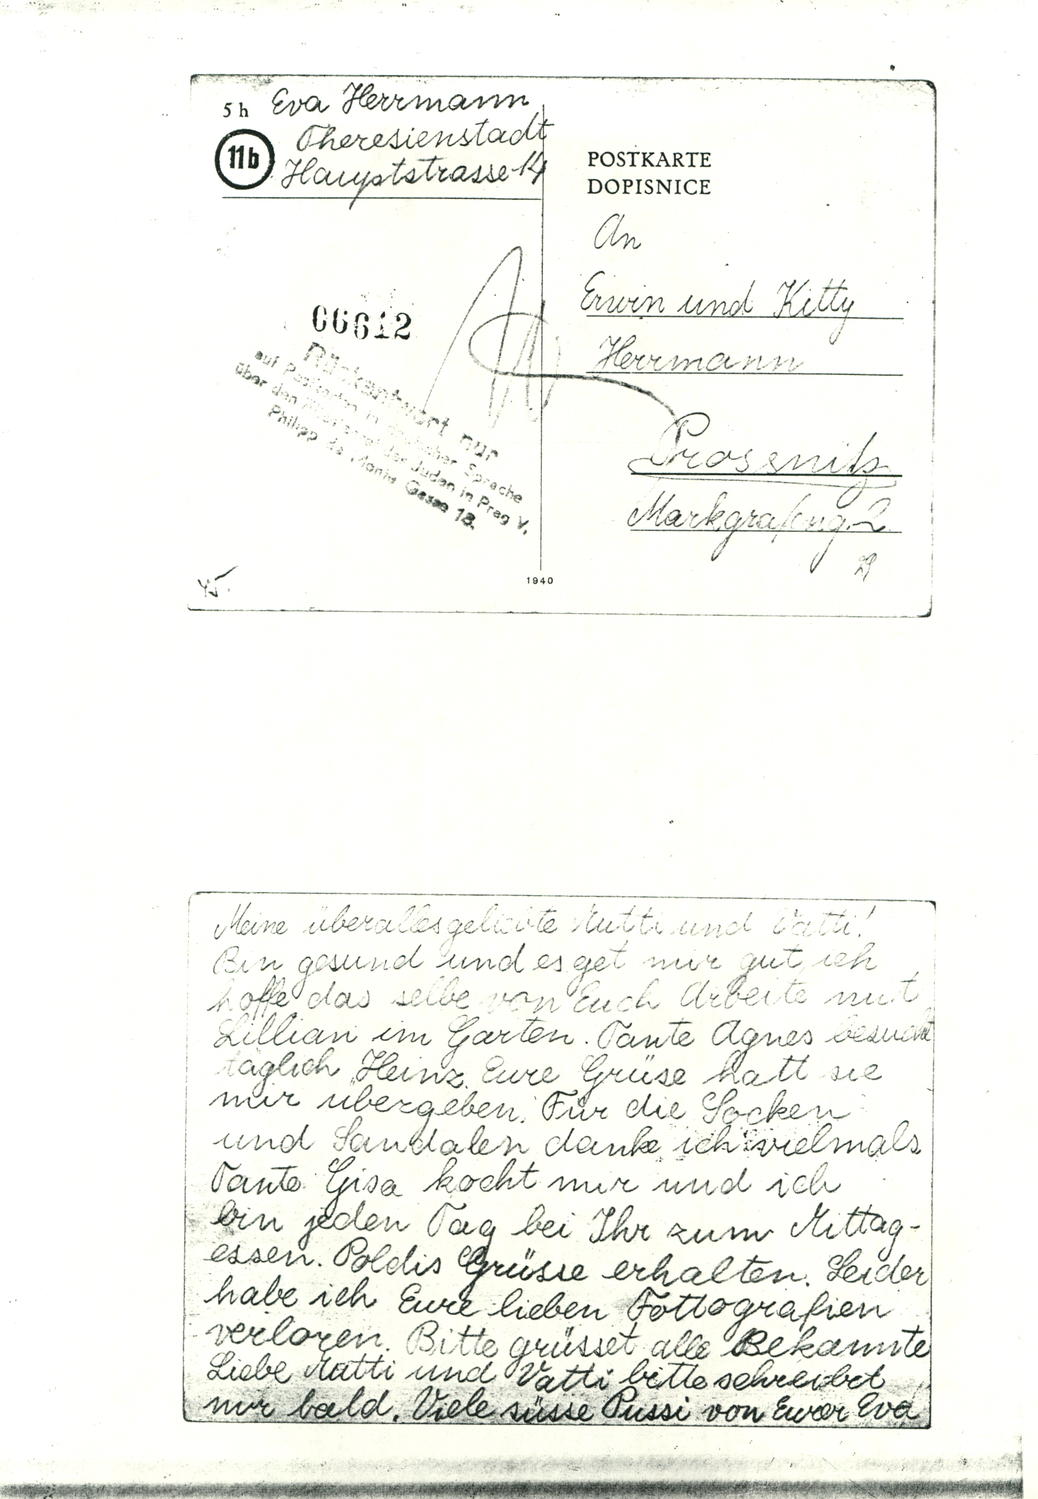 5 h Eva Herrmann
11b Theresienstadt
Hauptstrasse 14
POSTKARTE
DOPISNICE
An
Erwin und Kitty
Herrmann
Prossnitz
Markgrafeng. 2
06612
Rückantwort nur
auf Postkarten in deutscher Sprache
über den Ältestenrat der Juden in Prag V,
Philipp de Monte Gasse 18.
1940
Meine überallesgeliebte Mutti und Vatti!
Bin gesund und es get mir gut, ich
hoffe das selbe von Euch Arbeite mit
Lillian im Garten. Tante Agnes besucht
täglich Heinz. Eure Grüse hatt sie
mir übergeben. Für die Socken
und Sandalen danke ich vielmals.
Tante Gisa kocht mir und ich
bin jeden Tag bei Ihr zum Mittag-
essen. Poldis Grüsse erhalten. Leider
habe ich Eure lieben Fottografien
verloren. Bitte grüsset alle Bekannte
Liebe Mutti und Vatti bitte schreibet
mir bald. Viele süsse Pussi von Eurer Eva